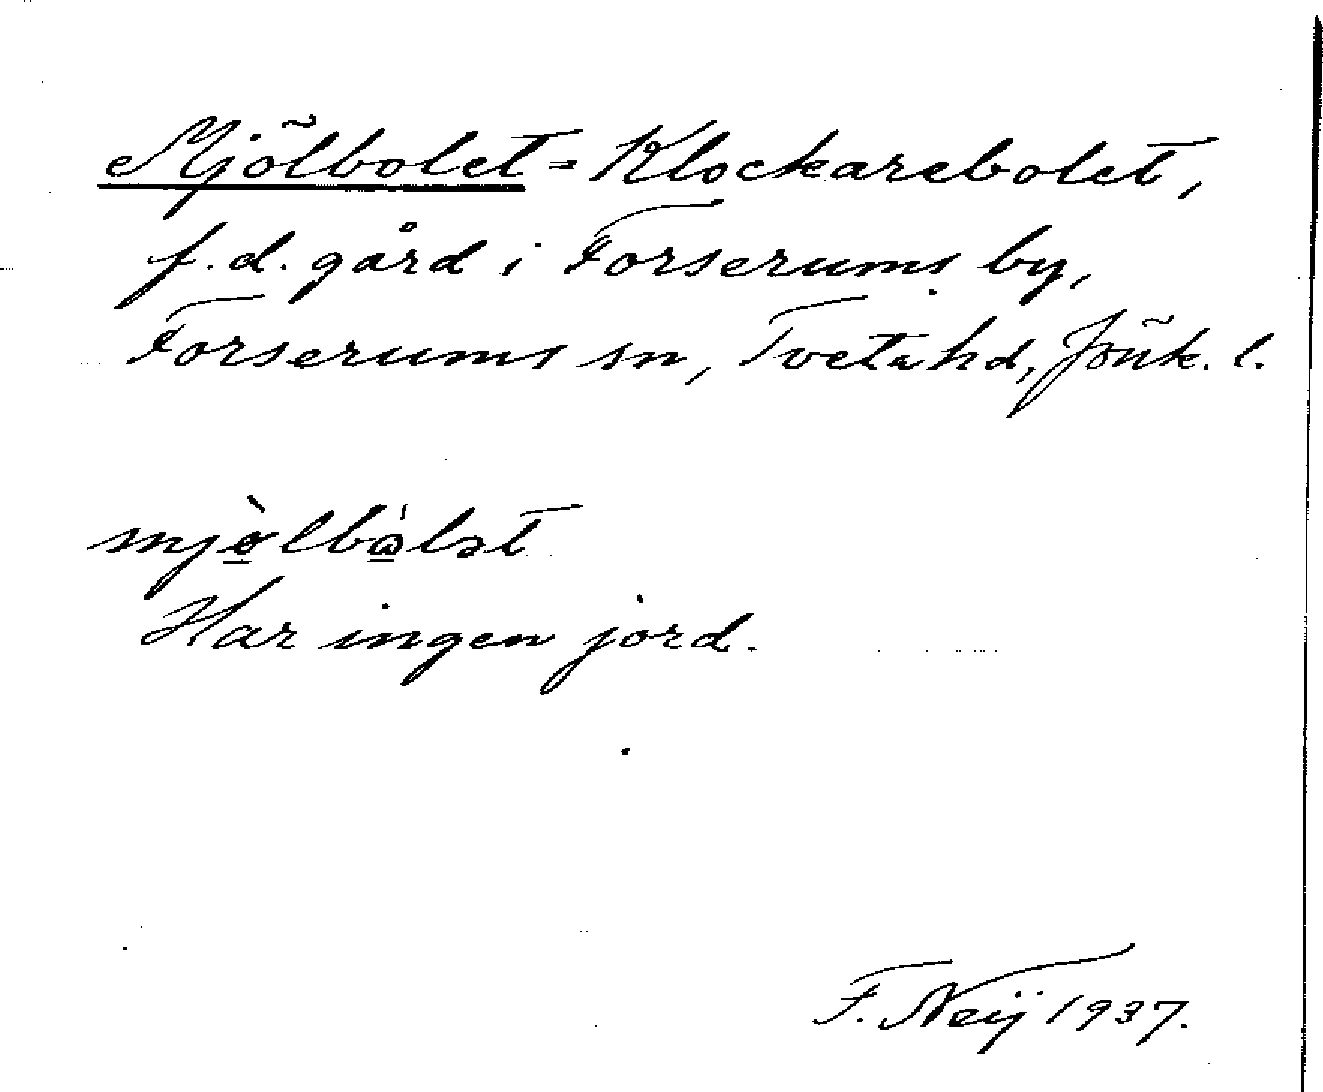 Mjölbolet = Klockarebolet,
f.d. gård i Forserums by,
Forserums sn, Tveta hd, Jönk. l.
mjö̀lbω̇lət
Har ingen jord.
F. Neij 1937.